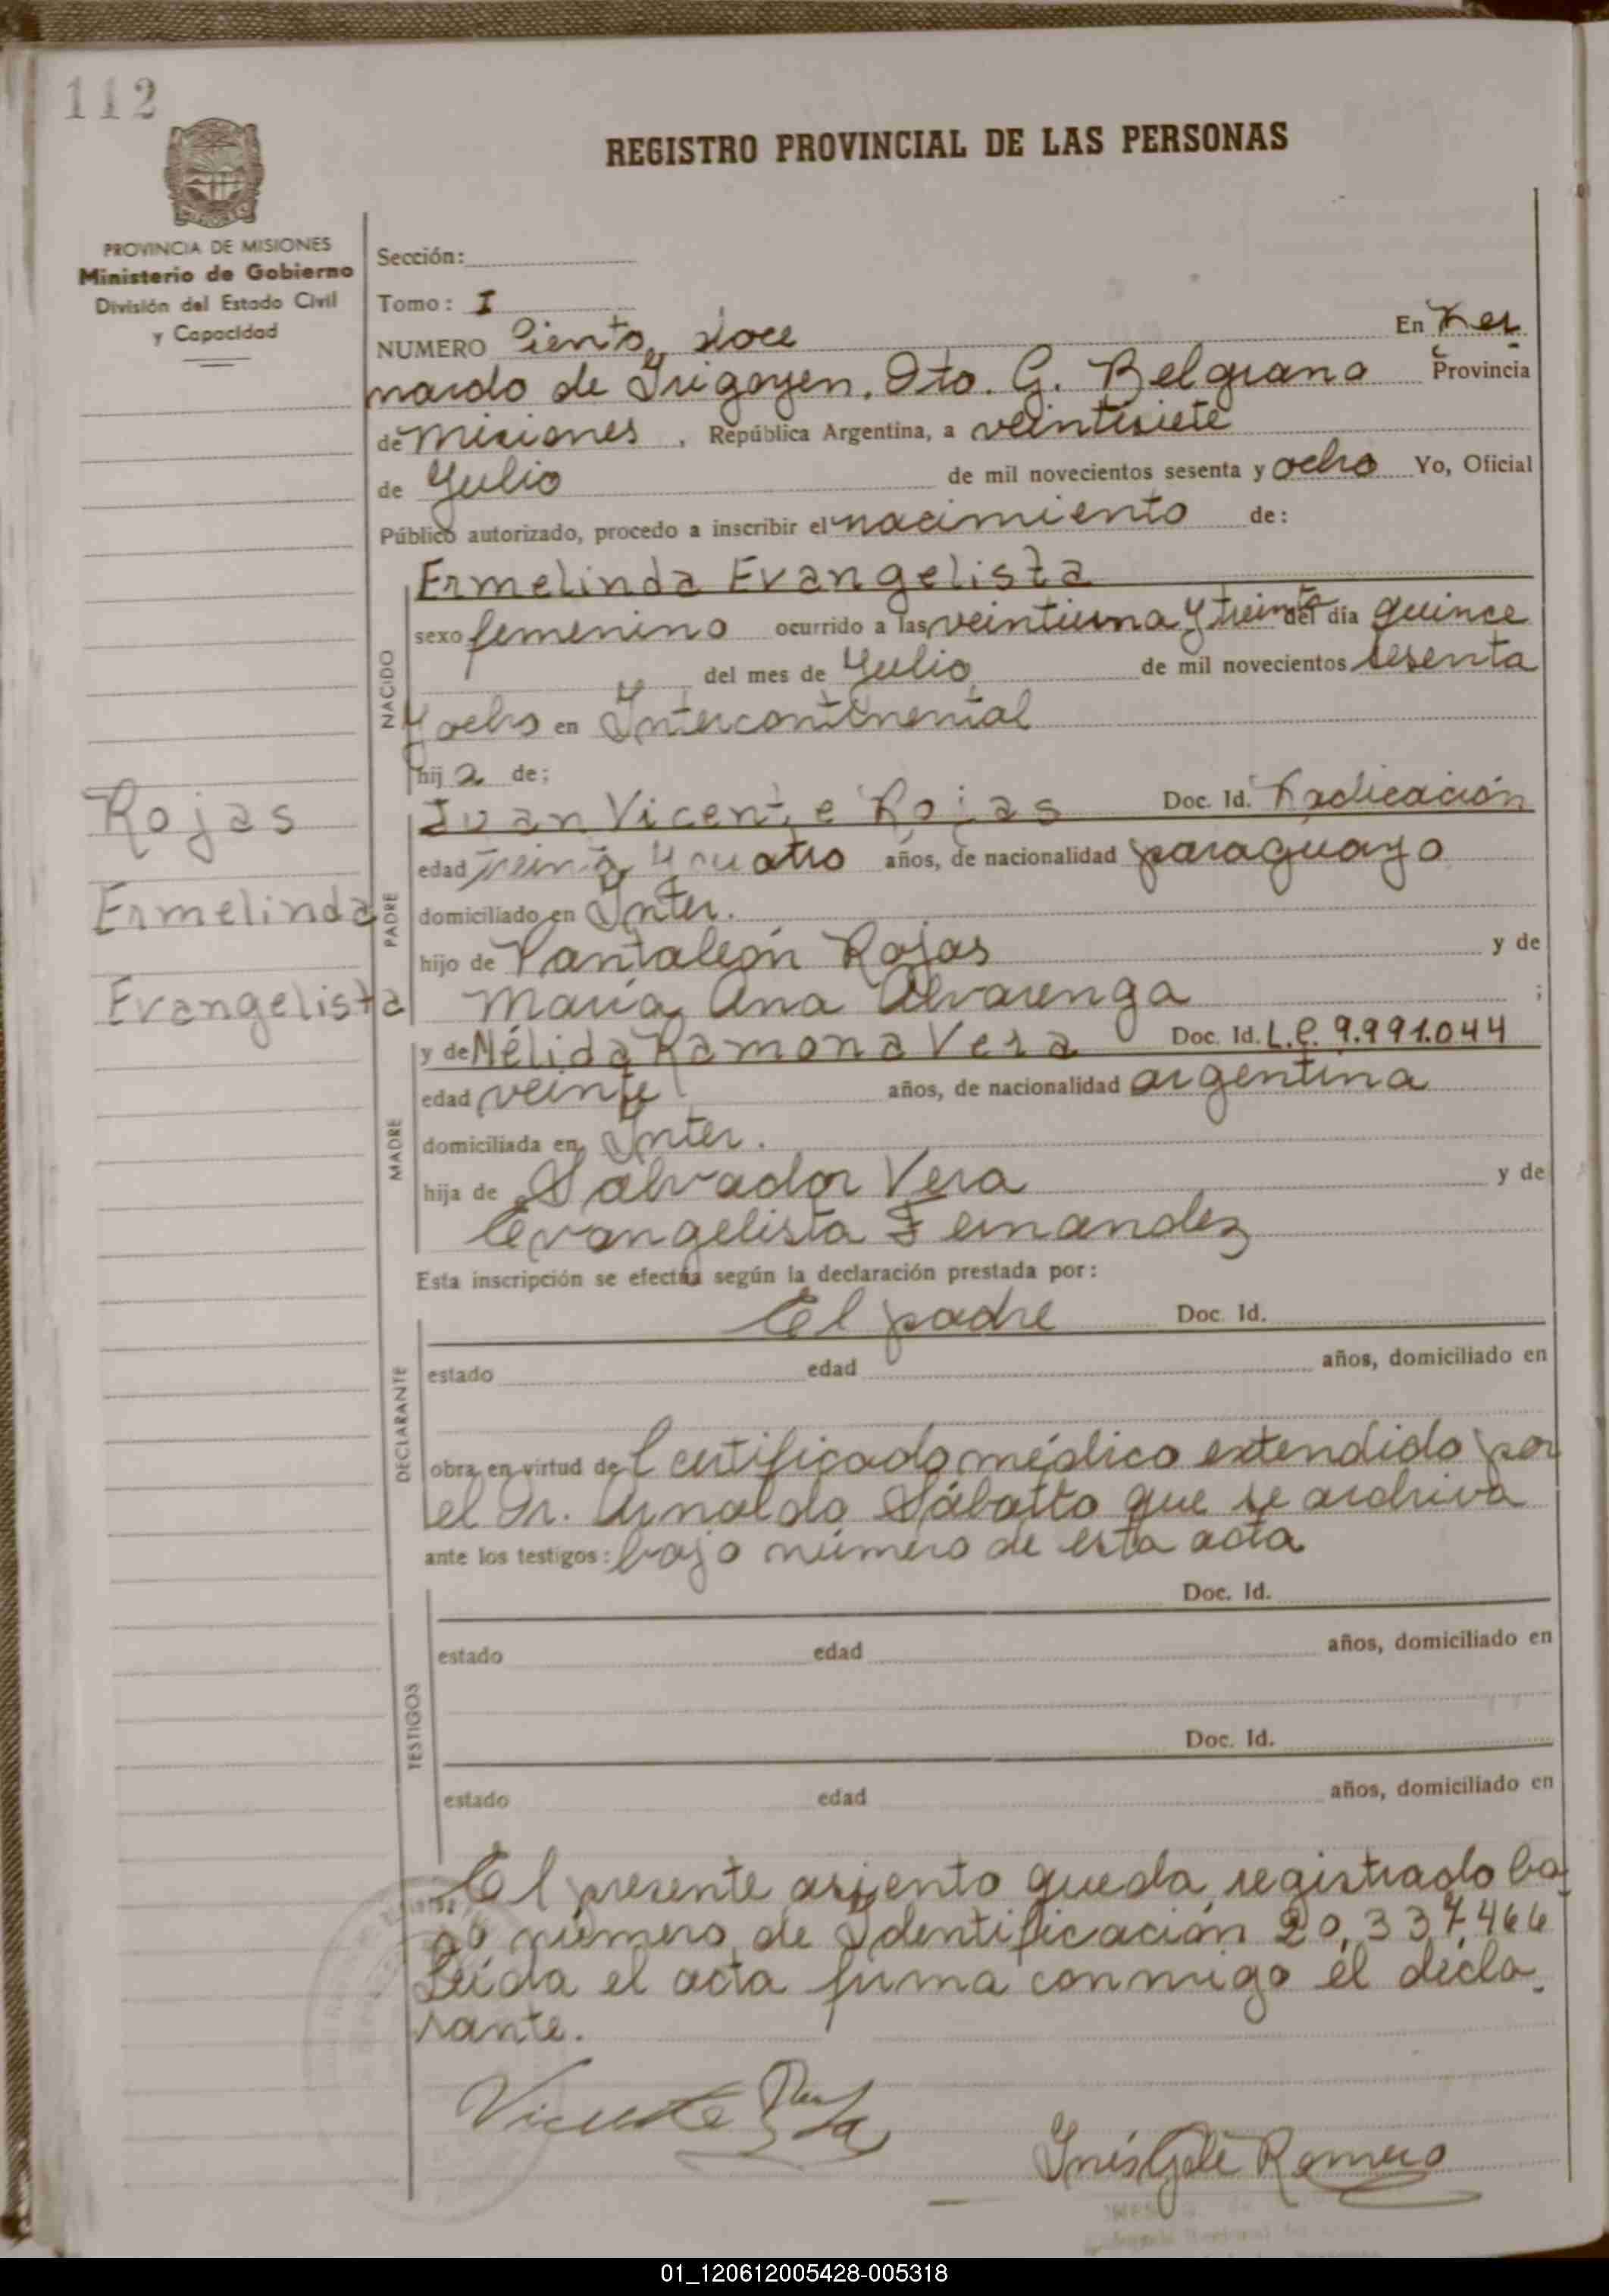 112
REGISTRO PROVINCIAL DE LAS PERSONAS
PROVINCIA DE MISIONES
Ministerio de Gobierno
División del Estado Civil
y Capacidad
Sección:
Tomo: I
NUMERO Ciento doce En Ber
nardo de Irigoyen, Dto. G. Belgrano Provincia
de Misiones, República Argentina, a veintisiete
de Julio de mil novecientos sesenta y ocho Yo, Oficial
Público autorizado, procedo a inscribir el nacimiento de:
NACIDO
Ermelinda Evangelista
sexo femenino ocurrido a las veintiuna y treinta del día quince
del mes de Julio de mil novecientos sesenta
y ocho en Intercontinental
hija de;
Rojas
Ermelinda
Evangelista
PADRE
Juan Vicente Rojas Doc. Id. Radicación
edad treinta y cuatro años, de nacionalidad paraguayo
domiciliado en Inter.
hijo de Pantaleón Rojas y de
María Ana Alvarenga ;
MADRE
y de Nélida Ramona Vera Doc. Id. L.C. 9.991.044
edad veinte años, de nacionalidad argentina
domiciliada en Inter.
hija de Salvador Vera y de
Evangelista Fernandez
Esta inscripción se efectúa según la declaración prestada por:
DECLARANTE
El padre Doc. Id.
estado edad años, domiciliado en
obra en virtud del certificado médico extendido por
el Dr. Arnaldo Sábatto que se archiva
ante los testigos: bajo número de esta acta
TESTIGOS
Doc. Id.
estado edad años, domiciliado en
Doc. Id.
estado edad años, domiciliado en
El presente asiento queda registrado ba
jo número de Identificación 20.337.466
Leída el acta firma conmigo el decla-
rante.
Vicente
Inés Romero
01_120612005428-005318